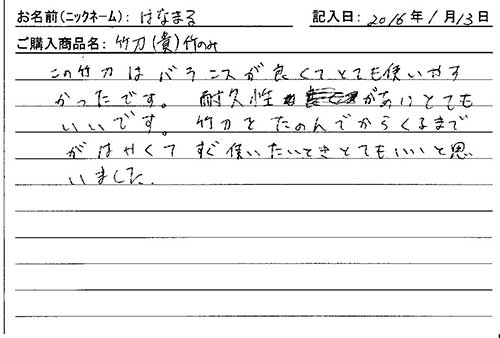 お名前(ニックネーム): はなまる 記入日: 2016年 1月 13日
ご購入商品名: 竹刀(貴)竹のみ
この竹刀はバランスが良くてとても使いやす
かったです。耐久性がありとても
いいです。竹刀をたのんでからくるまで
がはやくてすぐ使いたいときとてもいいと思
いました.